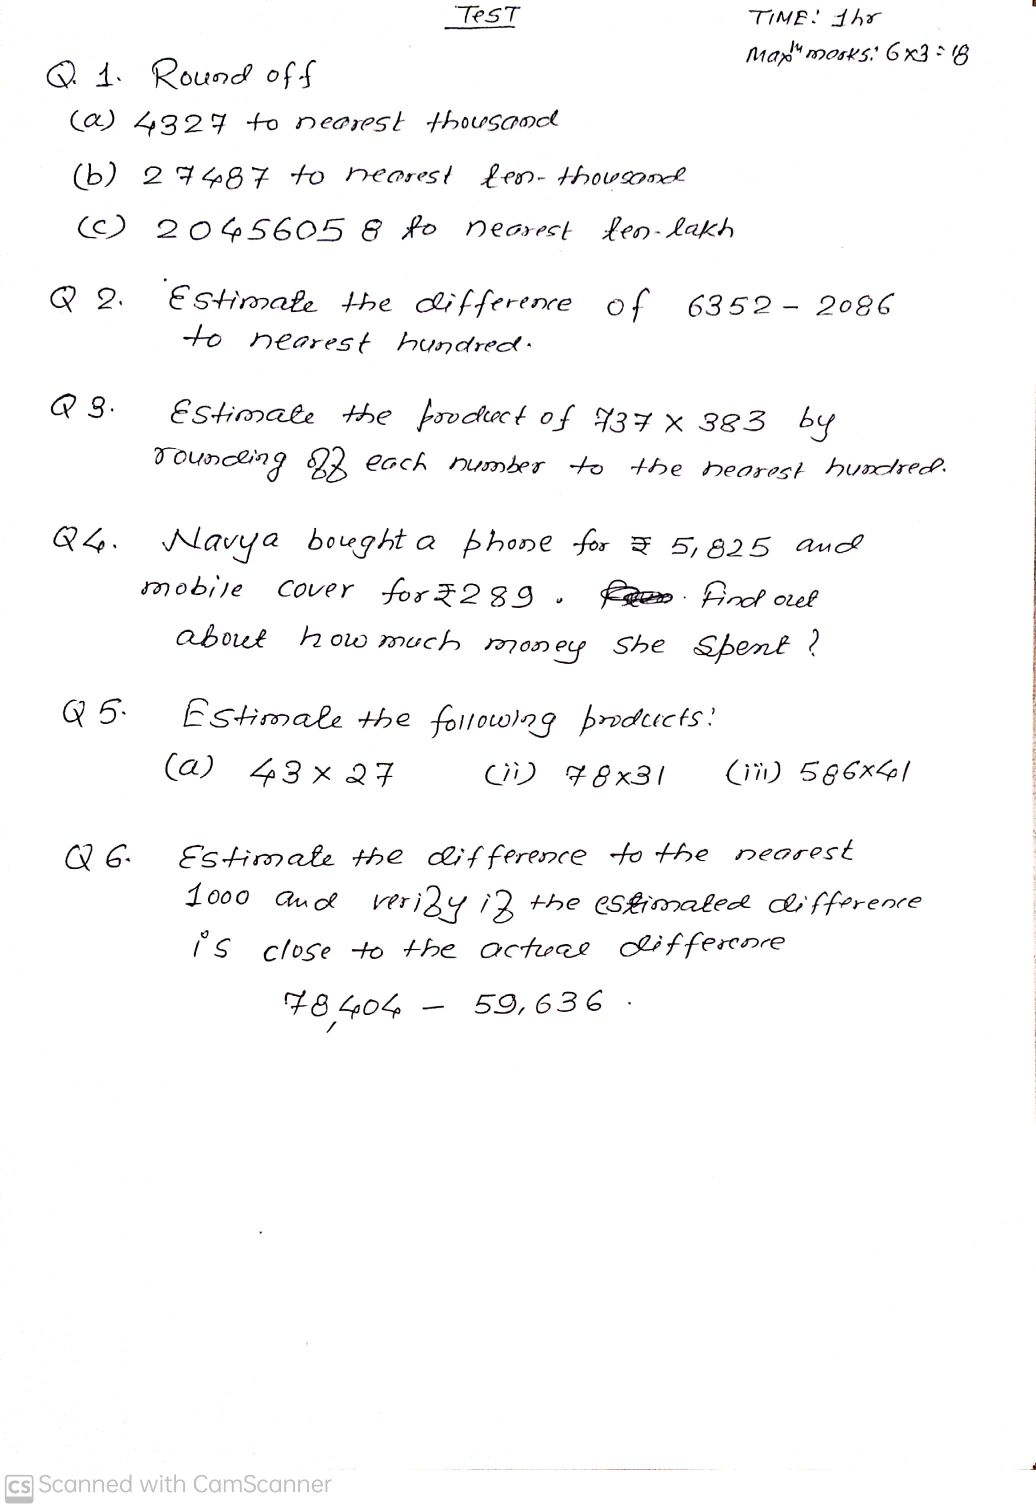 TEST
TIME: 1hr
Maxm marks: 6x3=18
Q. 1. Round off
(a) 4327 to nearest thousand
(b) 27487 to nearest ten-thousand
(c) 20456058 to nearest ten-lakh
Q 2. Estimate the difference of 6352 - 2086
to nearest hundred.
Q 3. Estimate the product of 737 x 383 by
rounding off each number to the nearest hundred.
Q4. Navya bought a phone for ₹ 5,825 and
mobile cover for ₹289. find out
about how much money she spent?
Q 5. Estimate the following products:
(a) 43 x 27 (ii) 78x31 (iii) 586x41
Q 6. Estimate the difference to the nearest
1000 and verify if the estimated difference
is close to the actual difference
78,404 - 59,636.
CS Scanned with CamScanner